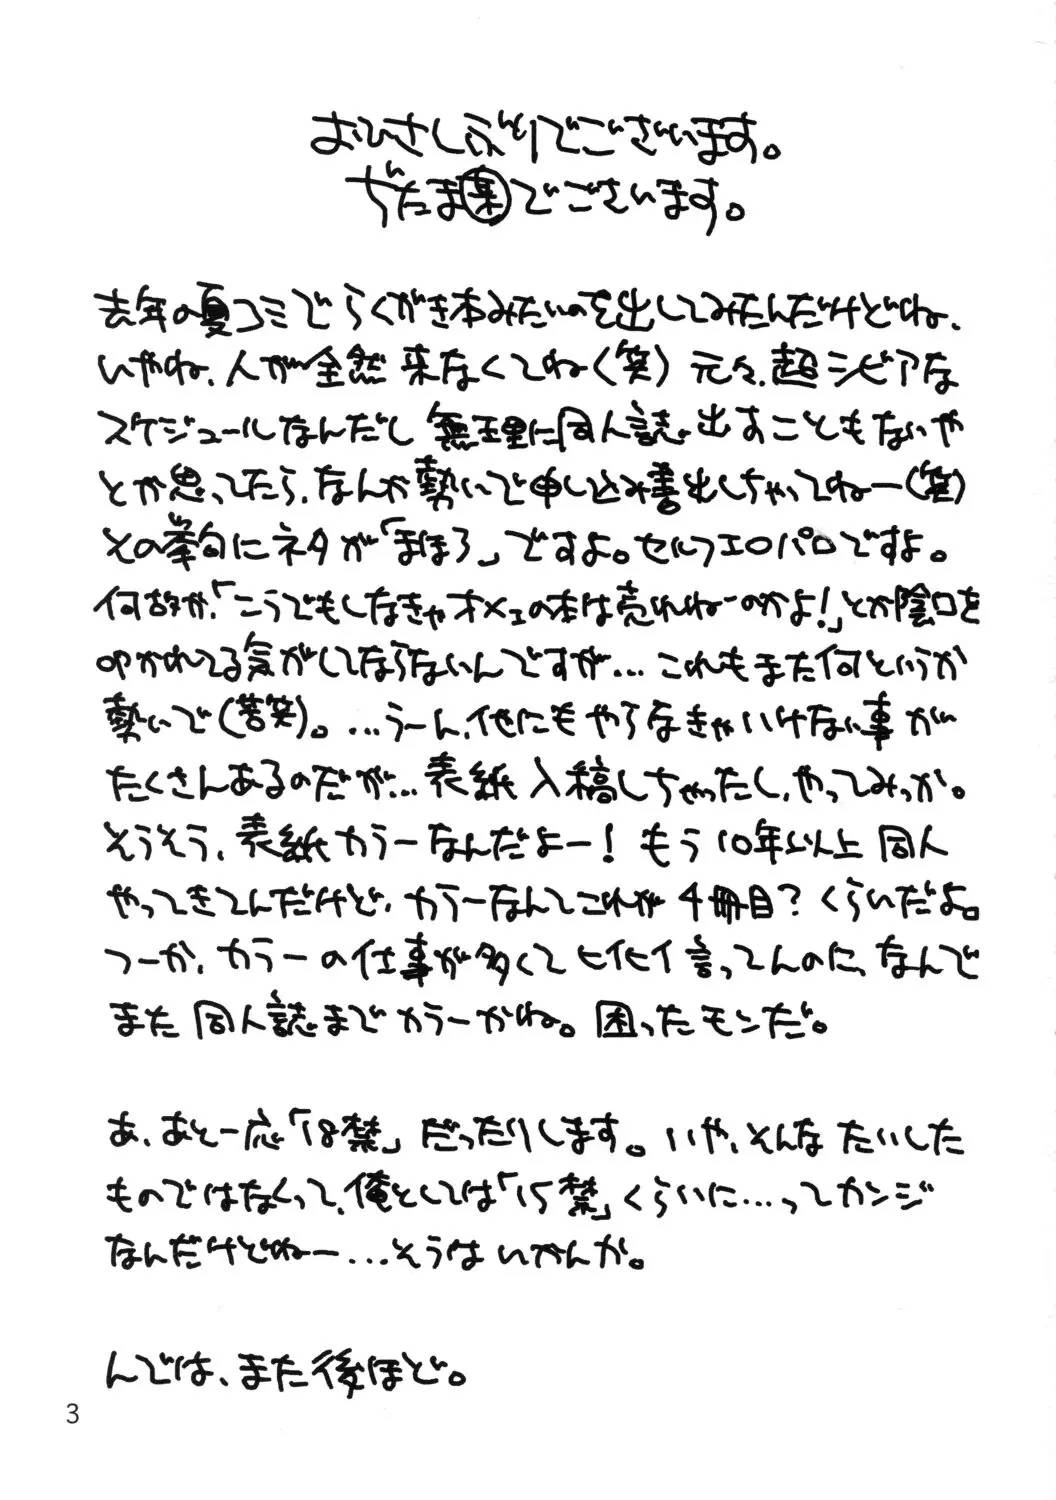 おひさしぶりでございます。
ぢたま(某)でございます。
去年の夏コミでらくがき本みたいのを出してみたんだけどね、
いやね、人が全然来なくてね(笑) 元々、超シビアな
スケジュールなんだし 無理に同人誌出すこともないや
とか思ってたら、なんか勢いで申し込み書出しちゃってねー(笑)
その挙句にネタが「まほろ」ですよ。セルフエロパロですよ。
何故か、「こうでもしなきゃオメェの本は売れねーのかよ!」とか陰口を
叩かれてる気がしてならないんですが…これもまた何というか
勢いで(苦笑)。…うーん、他にもやらなきゃいけない事が
たくさんあるのだが…表紙入稿しちゃったし、やってみっか。
そうそう、表紙カラーなんだよー! もう10年以上 同人
やってきてんだけど、カラーなんてこれが4冊目?くらいだよ。
つーか、カラーの仕事が多くてヒイヒイ言ってんのに、なんで
また 同人誌までカラーかね。困ったモンだ。
あ、あと一応「18禁」だったりします。いや、そんな たいした
ものではなくって、俺としては「15禁」くらいに…ってカンジ
なんだけどねー…そうはいかんか。
んでは、また後ほど。
3